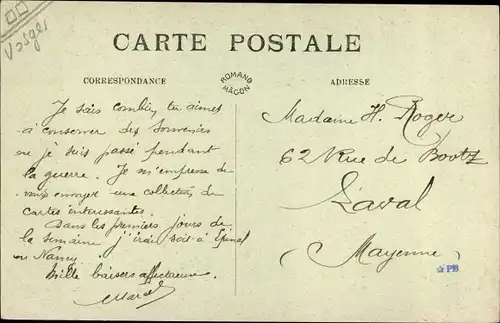 Vosges
CARTE POSTALE
CORRESPONDANCE
ROMAND
MÂCON
ADRESSE
Je sais combien tu aimes
à conserver des souvenirs
où je suis passé pendant
la guerre. Je m'empresse de
envoyer une collection de
cartes intéressantes.
Dans les premiers jours de
la semaine j'irai soit à Epinal
ou Nancy.
Mille baisers affectueux.
Marcel
Madame H. Roger
62 Rue de Bootz
Laval
(Mayenne)
PB